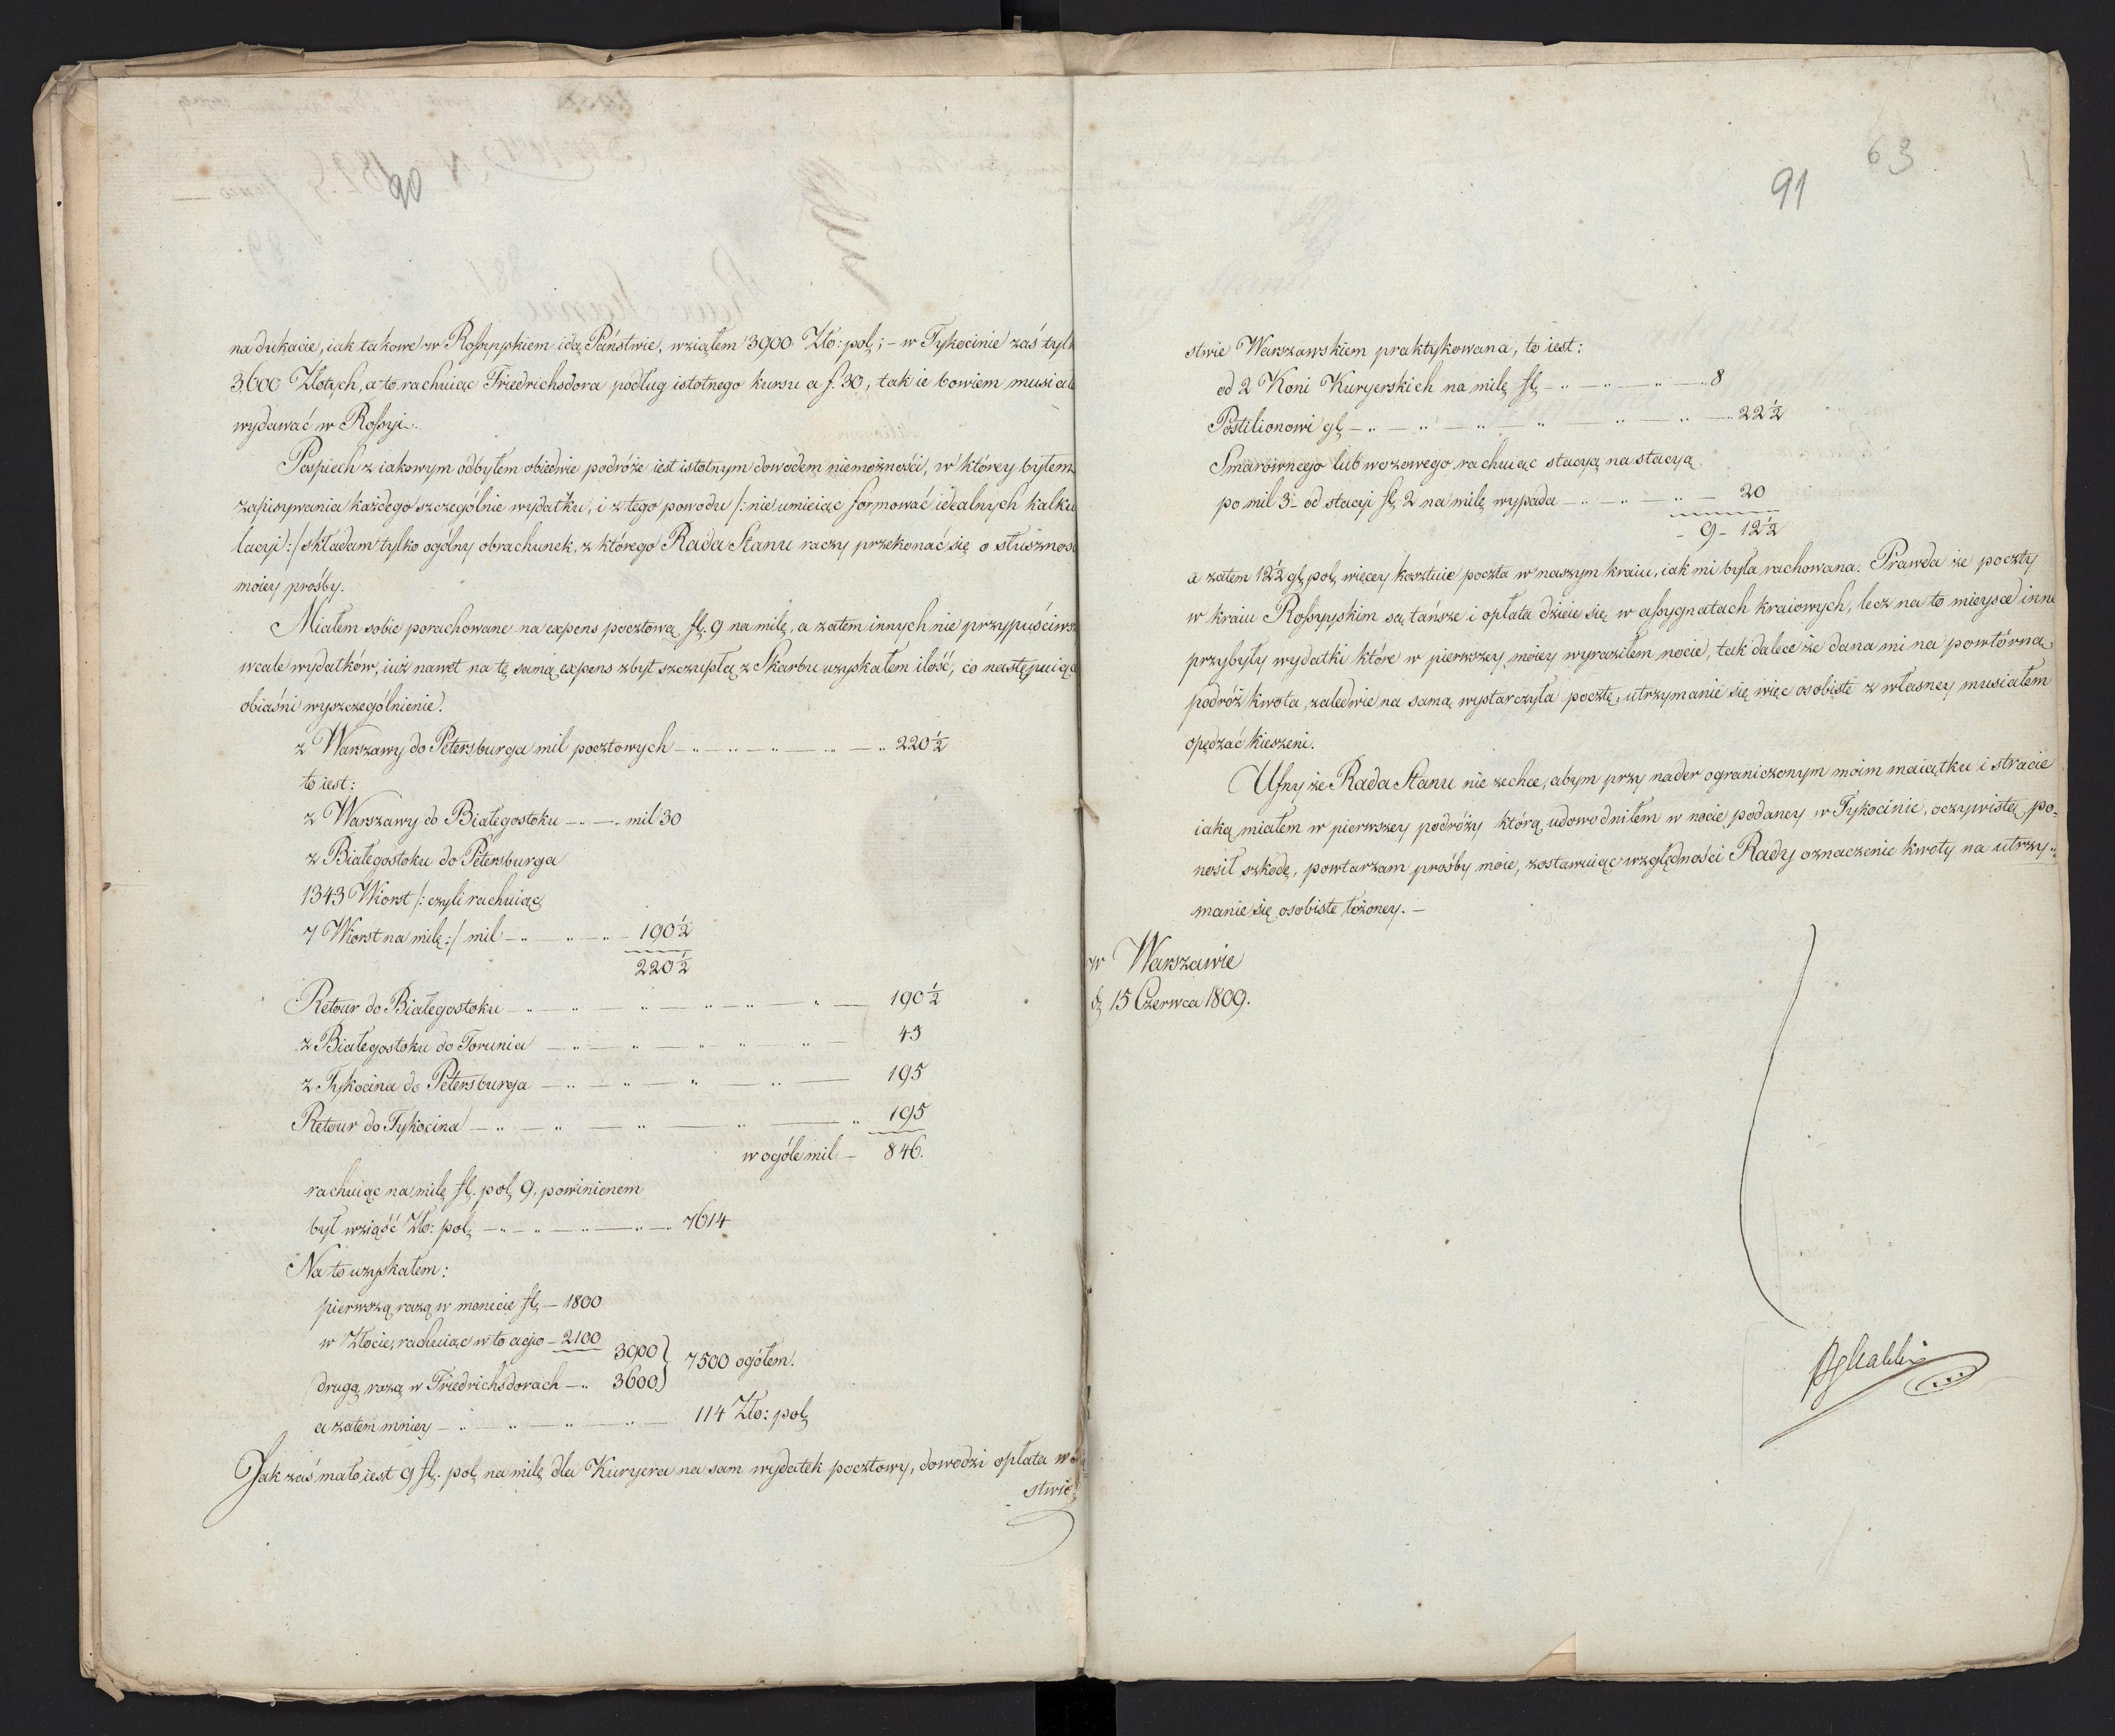 90
na dukacie, iak takowe w Rossyyskiem idą Państwie, wziąłem 3900 Zło: pol; - w Tykocinie zaś tyl
3600 Złotych, a to rachuiąc Friedrichsdora podług istotnego kursu a f. 30, tak ie bowiem musiał
wydawać w Rossyi.
Pospiech z iakowym odbyłem obiedwie podróże iest istotnym dowodem niemożności, w którey byłem
zapisywania każdego szczególnie wydatku, i z tego powodu /: nie umieiąc formować idealnych kalku
lacyi :/ składam tylko ogólny obrachunek, z którego Rada Stanu raczy przekonać się o słusznoś
moiey prośby.
Miałem sobie porachowane na expens pocztową fl. 9 na milę, a zatem innych nie przypuściws
wcale wydatków, iuż nawet na tę samą expens zbyt szczupłą z Skarbu uzyskałem ilość, co następuiąc
obiaśni wyszczególnienie.
z Warszawy do Petersburga mil pocztowych 220½
to iest:
z Warszawy do Białegostoku mil 30
z Białegostoku do Petersburga
1343 Wiorst /: czyli rachuiąc
7 Wiorst na milę :/ mil 190½
220½
Retour do Białegostoku 190½
z Białegostoku do Torunia 43
z Tykocina do Petersburga 195
Retour do Tykocina 195
w ogóle mil - 846.
rachuiąc na milę fl. pol. 9, powinienem
był wziąść Zło: pol. 7614
Na to uzyskałem:
pierwszą razą w monecie fl. - 1800
w Złocie, rachuiąc w to agio - 2100
3900 } 7500 ogółem.
drugą razą w Friedrichsdorach - 3600
a zatem mniey 114 Zło: pol.
Jak zaś mało iest 9 fl. pol. na milę dla Kuryera na sam wydatek pocztowy, dowodzi opłata w
stwie
63
91
stwie Warszawskiem praktykowana, to iest:
od 2 Koni Kuryerskich na milę fl. 8
Postilionowi gl. 22½
Smarownego lub wozowego rachuiąc stacyą na stacyą
po mil 3 - od stacyi fl. 2 na milę wypada 20
- 9 - 12½
a zatem 12½ gl. pol. więcey kosztuie poczta w naszym kraiu, iak mi była rachowana. Prawda że poczty
w kraiu Rossyyskim są tańsze i opłata dzieie się w assygnatach kraiowych, lecz na to mieysce inne
przybyły wydatki które w pierwszey moiey wyraziłem nocie, tak dalece że dana mi na powtórną
podróż kwota, zaledwie na samą wystarczyła pocztę, utrzymanie się więc osobiste z własney musiałem
opędzać kieszeni.
Ufny że Rada Stanu nie zechce, abym przy nader ograniczonym moim maiątku i stracie
iaką miałem w pierwszey podróży którą udowodniłem w nocie podaney w Tykocinie, oczywistą po=
nosił szkodę, powtarzam prośby moie, zostawuiąc względności Rady oznaczenie kwoty na utrzy=
manie się osobiste łożoney. -
w Warszawie
d. 15 Czerwca 1809.